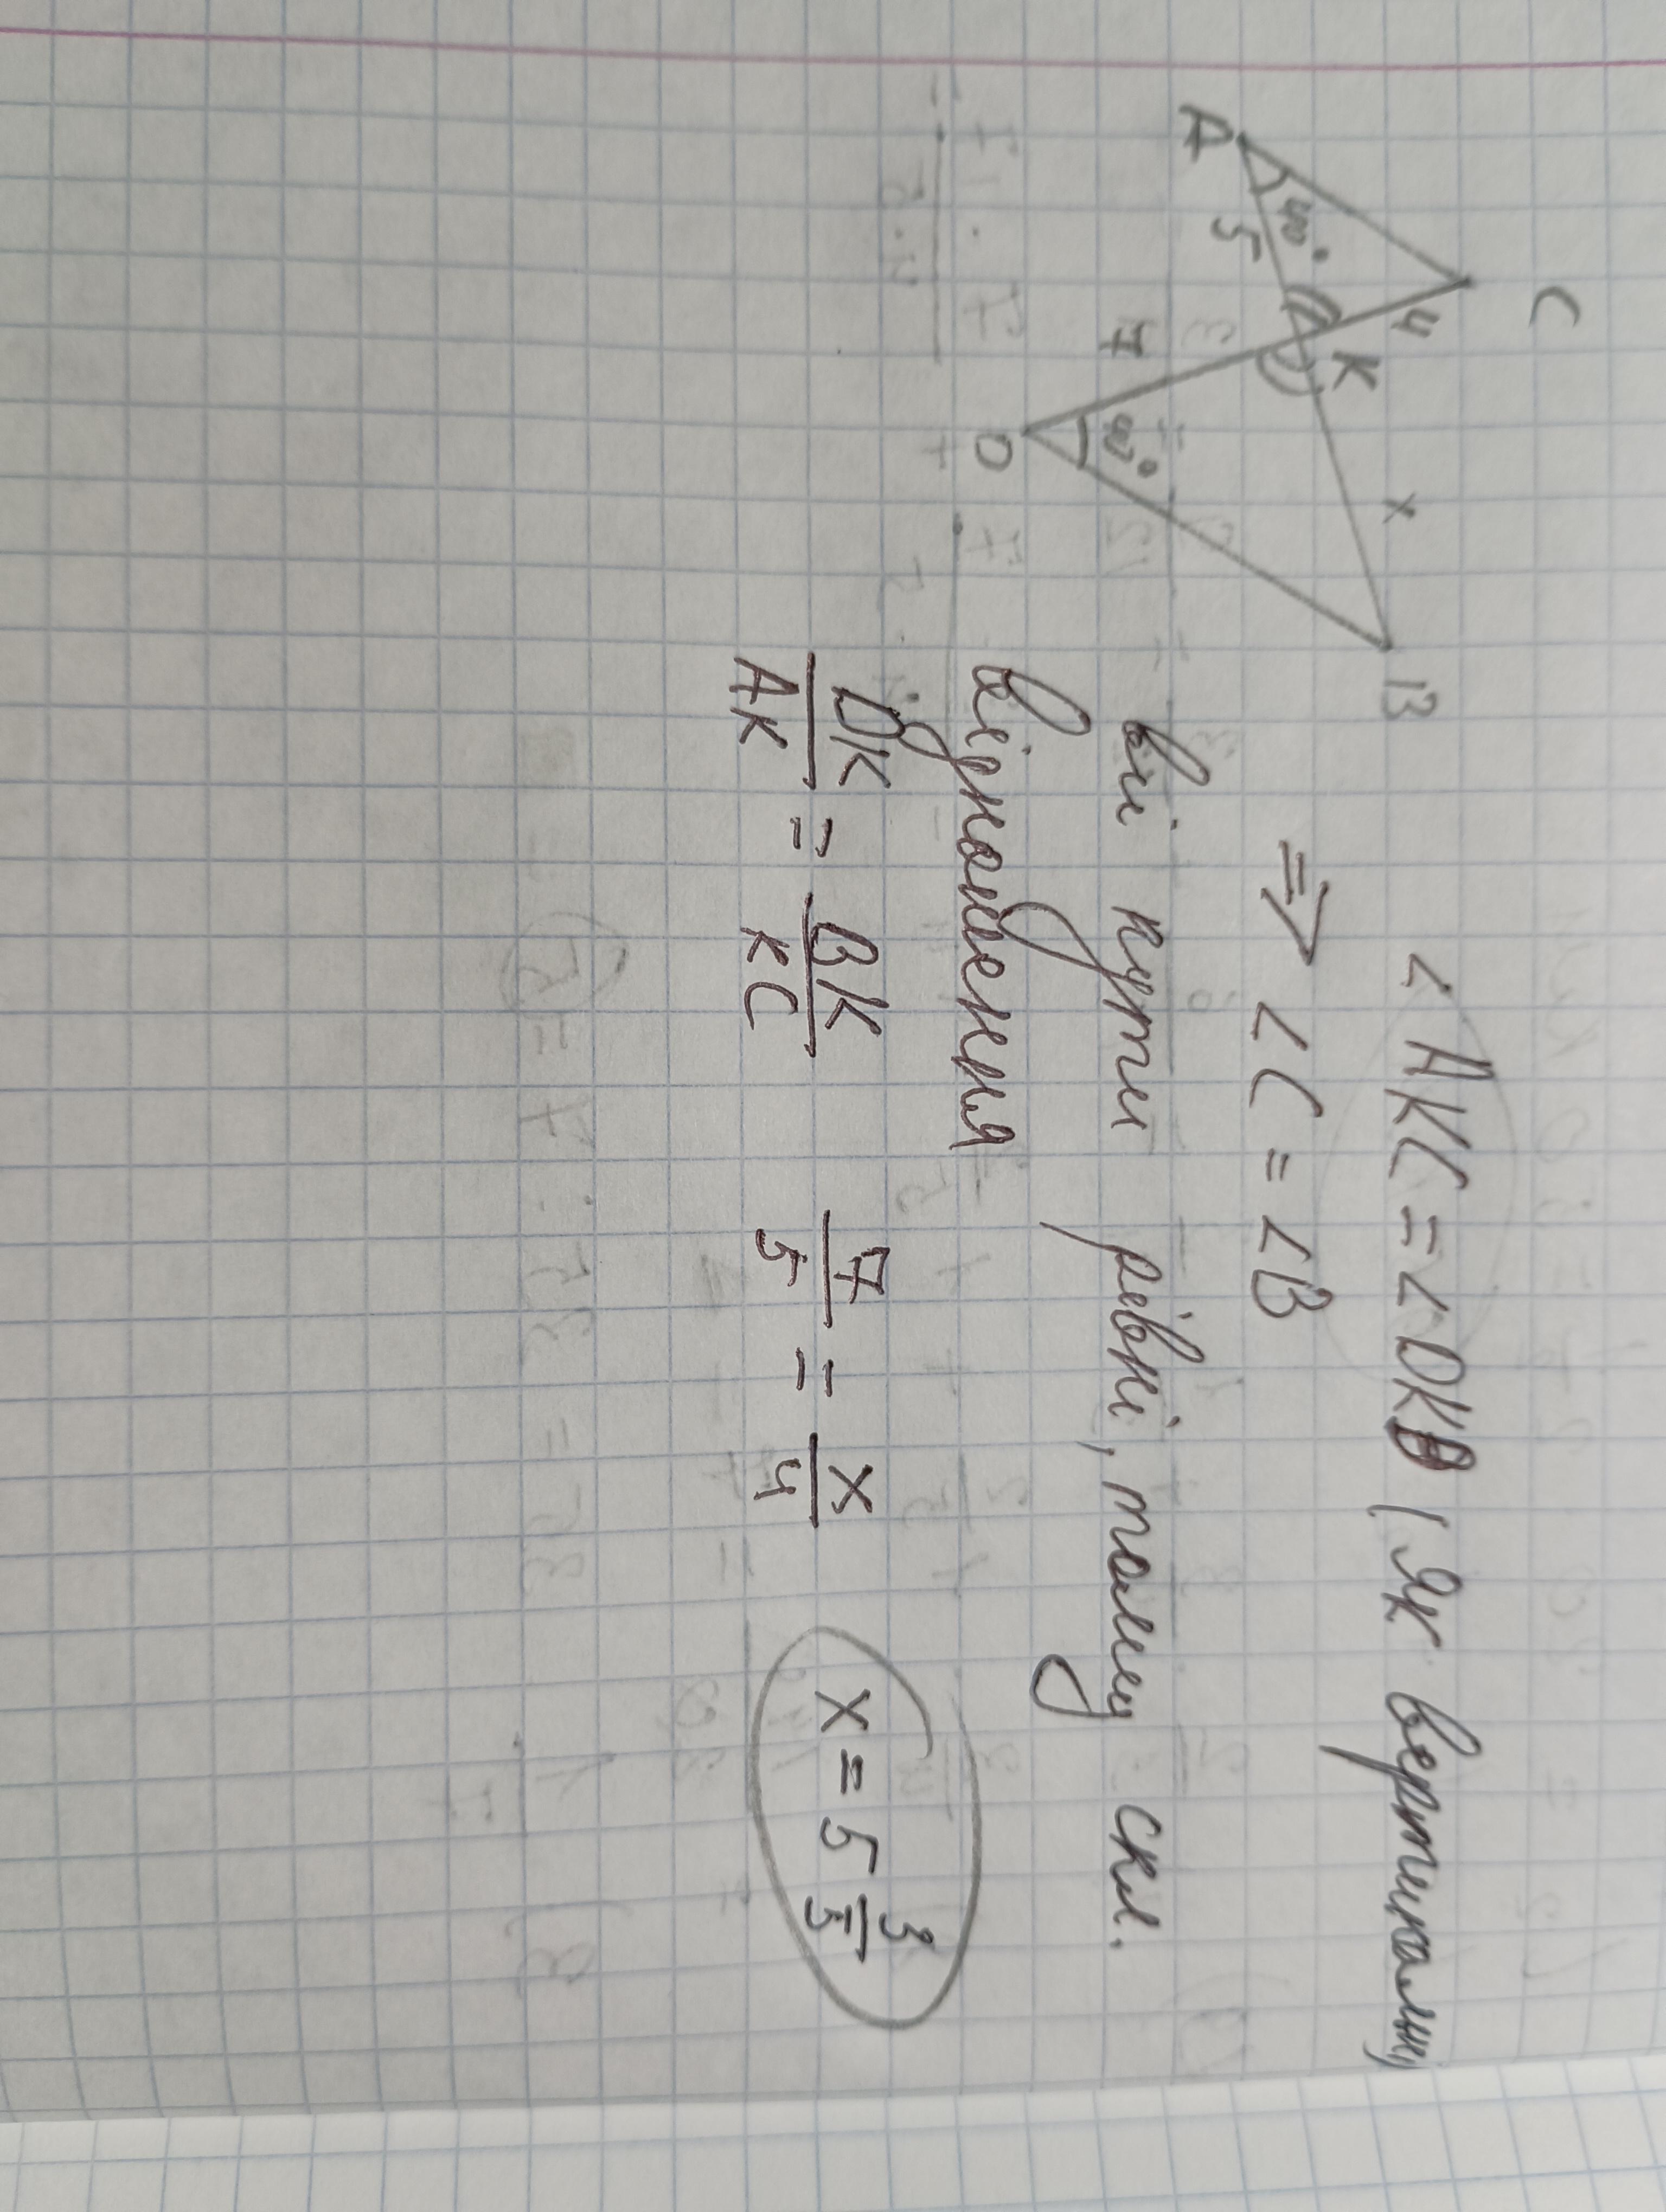 C
4
K
x
B
A
40°
5
7
40°
D
∠AKC = ∠DKB (як вертикальні)
⇒ ∠C = ∠B
всі кути рівні, тому скл.
відношення
DK/AK = BK/KC 7/5 = x/4 x = 5 3/5